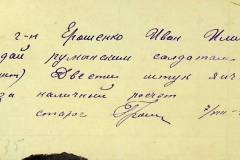 г-н Ерошенко Иван Или
дай румынским солдатам
Двести штук яиц
за наличный расчет
староста
35